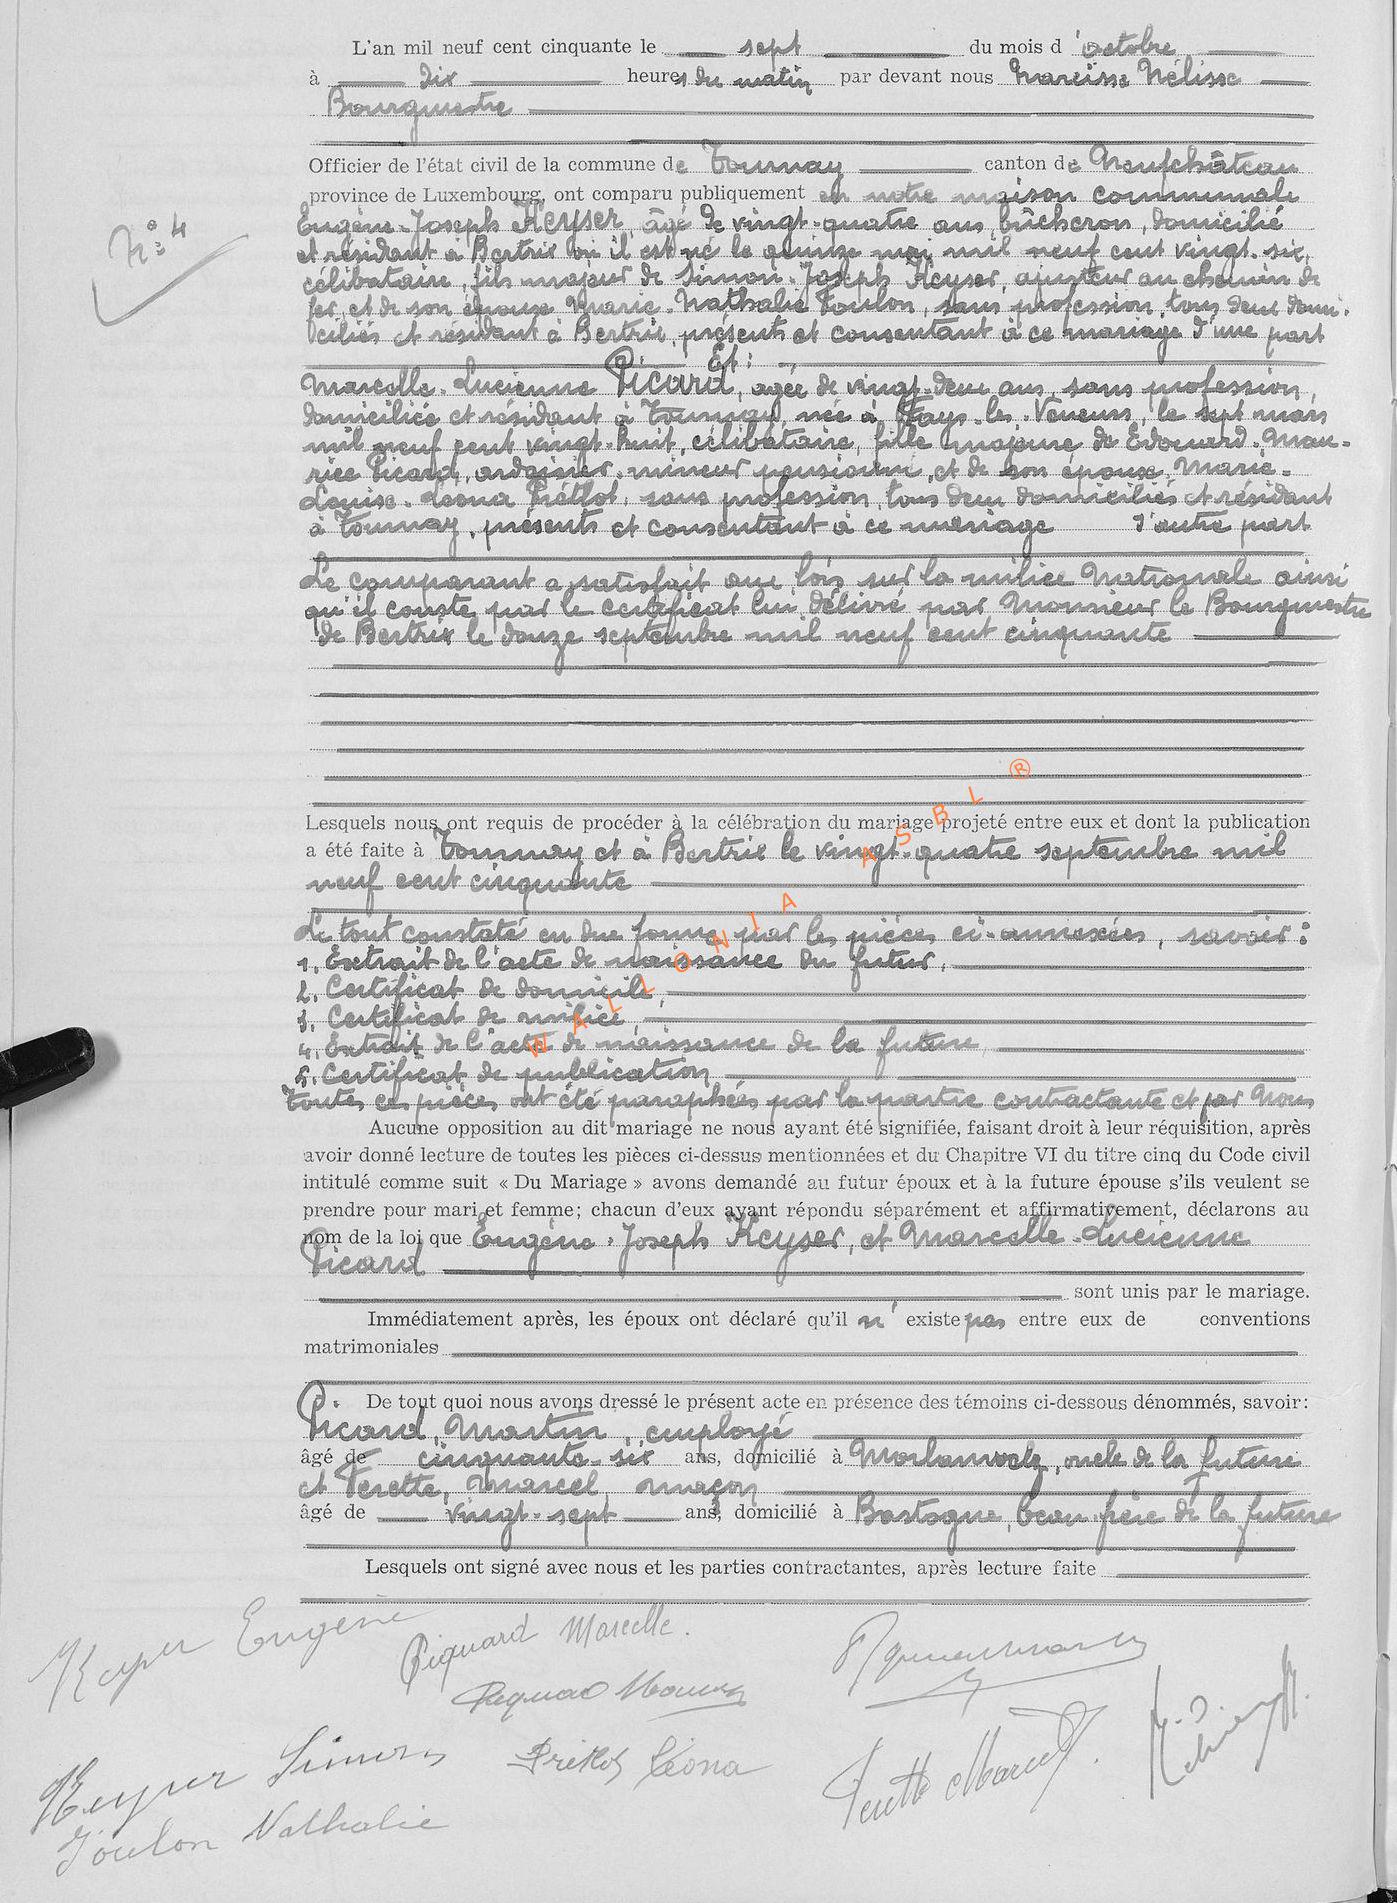 L'an mil neuf cent cinquante le sept du mois d'octobre
à Dix heures du matin par devant nous Narcisse Nélisse
Bourgmestre
Officier de l'état civil de la commune de Tournay canton de Neufchâteau
province de Luxembourg, ont comparu publiquement en notre maison communale
N° 4
Eugène-Joseph Keyser, âgé de vingt-quatre ans, bûcheron, domicilié
et résidant à Bertrix où il est né le quinze mai mil neuf cent vingt-six,
célibataire, fils majeur de Simon-Joseph Keyser, ajusteur au chemin de
fer, et de son épouse Marie-Nathalie Toulon, sans profession, tous deux domi-
ciliés et résidant à Bertrix, présents et consentant à ce mariage d'une part
Et :
Marcelle-Lucienne Picard, agée de vingt-deux ans, sans profession,
domiciliée et résidant à Tournay, née à Fays-les-Veneurs, le sept mars
mil neuf cent vingt-huit, célibataire, fille majeure de Edouard-Mau-
rice Picard, ardoisier, mineur pensionné, et de son épouse, Marie-
Louise-Léona Piétlot, sans profession, tous deux domiciliés et résidant
à Tournay, présents et consentant à ce mariage d'autre part
Le comparant a satisfait aux lois sur la milice Nationale ainsi
qu'il conste par le certificat lui délivré par Monsieur le Bourgmestre
de Bertrix le douze septembre mil neuf cent cinquante
Lesquels nous ont requis de procéder à la célébration du mariage projeté entre eux et dont la publication
a été faite à Tournay et à Bertrix le vingt-quatre septembre mil
neuf cent cinquante
Le tout constaté en due forme par les pièces ci-annexées, savoir :
1. Extrait de l'acte de naissance du futur,
2. Certificat de domicile,
3. Certificat de milice,
4. Extrait de l'acte de naissance de la future,
5. Certificat de publication
Toutes ces pièces ont été paraphées par la partie contractante et par Nous
Aucune opposition au dit mariage ne nous ayant été signifiée, faisant droit à leur réquisition, après
avoir donné lecture de toutes les pièces ci-dessus mentionnées et du Chapitre VI du titre cinq du Code civil
intitulé comme suit « Du Mariage » avons demandé au futur époux et à la future épouse s'ils veulent se
prendre pour mari et femme; chacun d'eux ayant répondu séparément et affirmativement, déclarons au
nom de la loi que Eugène-Joseph Keyser, et Marcelle-Lucienne
Picard
sont unis par le mariage.
Immédiatement après, les époux ont déclaré qu'il n'existe pas entre eux de conventions
matrimoniales
De tout quoi nous avons dressé le présent acte en présence des témoins ci-dessous dénommés, savoir:
Picard, Martin, employé
âgé de cinquante-six ans, domicilié à Morlanwelz, oncle de la future
et Perette, Marcel, maçon
âgé de vingt-sept ans, domicilié à Bastogne, beau-frère de la future
Lesquels ont signé avec nous et les parties contractantes, après lecture faite
Keyser Eugène
Piquard Marcelle.
Keyser Simon
Léona
Toulon Nathalie
WALLONIA ASBL ®